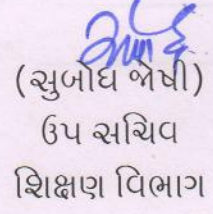 (સુબોધ જોષી)
ઉપ સચિવ
શિક્ષણ વિભાગ